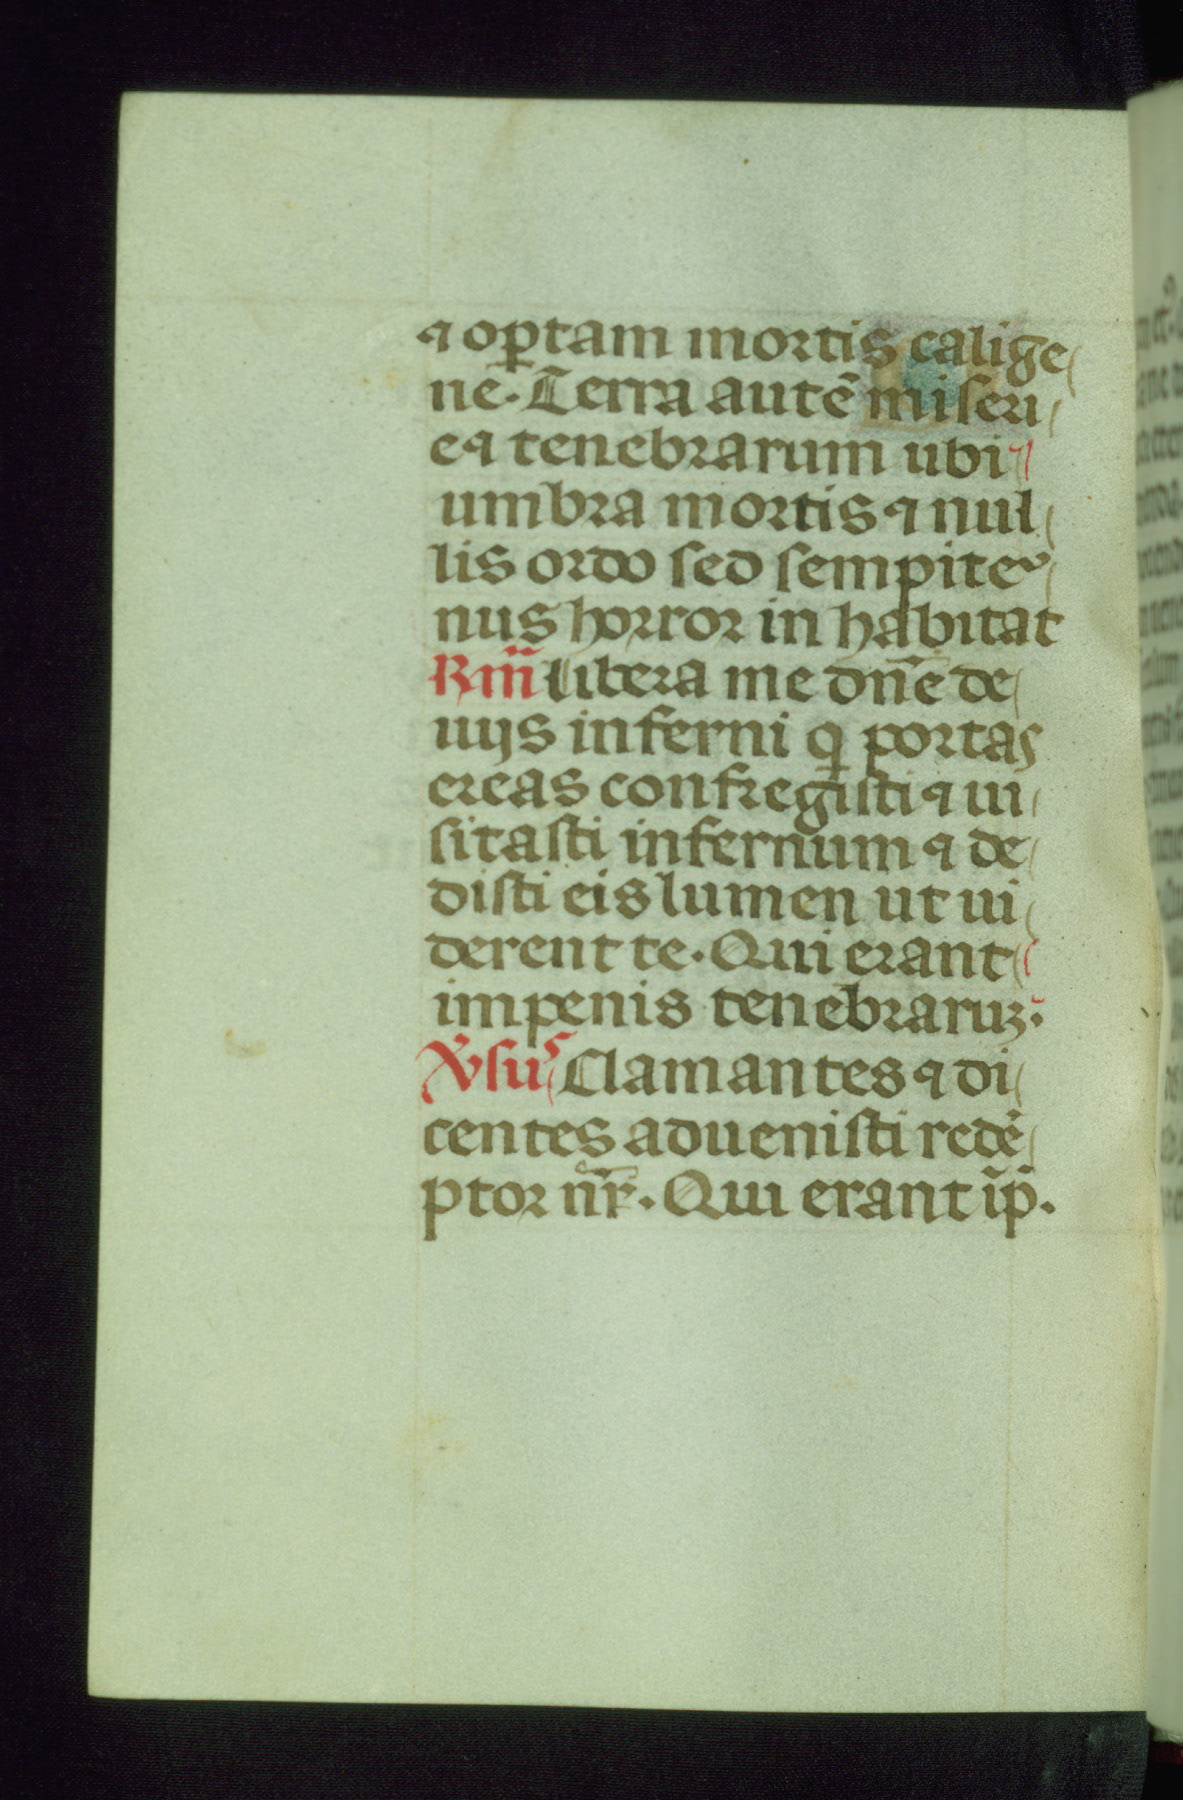 ⁊ op̲tam mortis calige
nē. Terra autē miseri
e ⁊ tenebrarum ubi
umbra mortis ⁊ nul
lis ordo sed sempiter
nus horror in habitat
Rm̄ Libera me dn̄e de
uijs inferni q̲ portas
ereas confregisti ⁊ ui
sitasti infernum ⁊ de
disti eis lumen ut ui
derent te. Qui erant
im penis tenebraruꝫ.
Vsus Clamantes ⁊ di
centes aduenisti redē
ptor nr̄. Qui erant ī p̄.